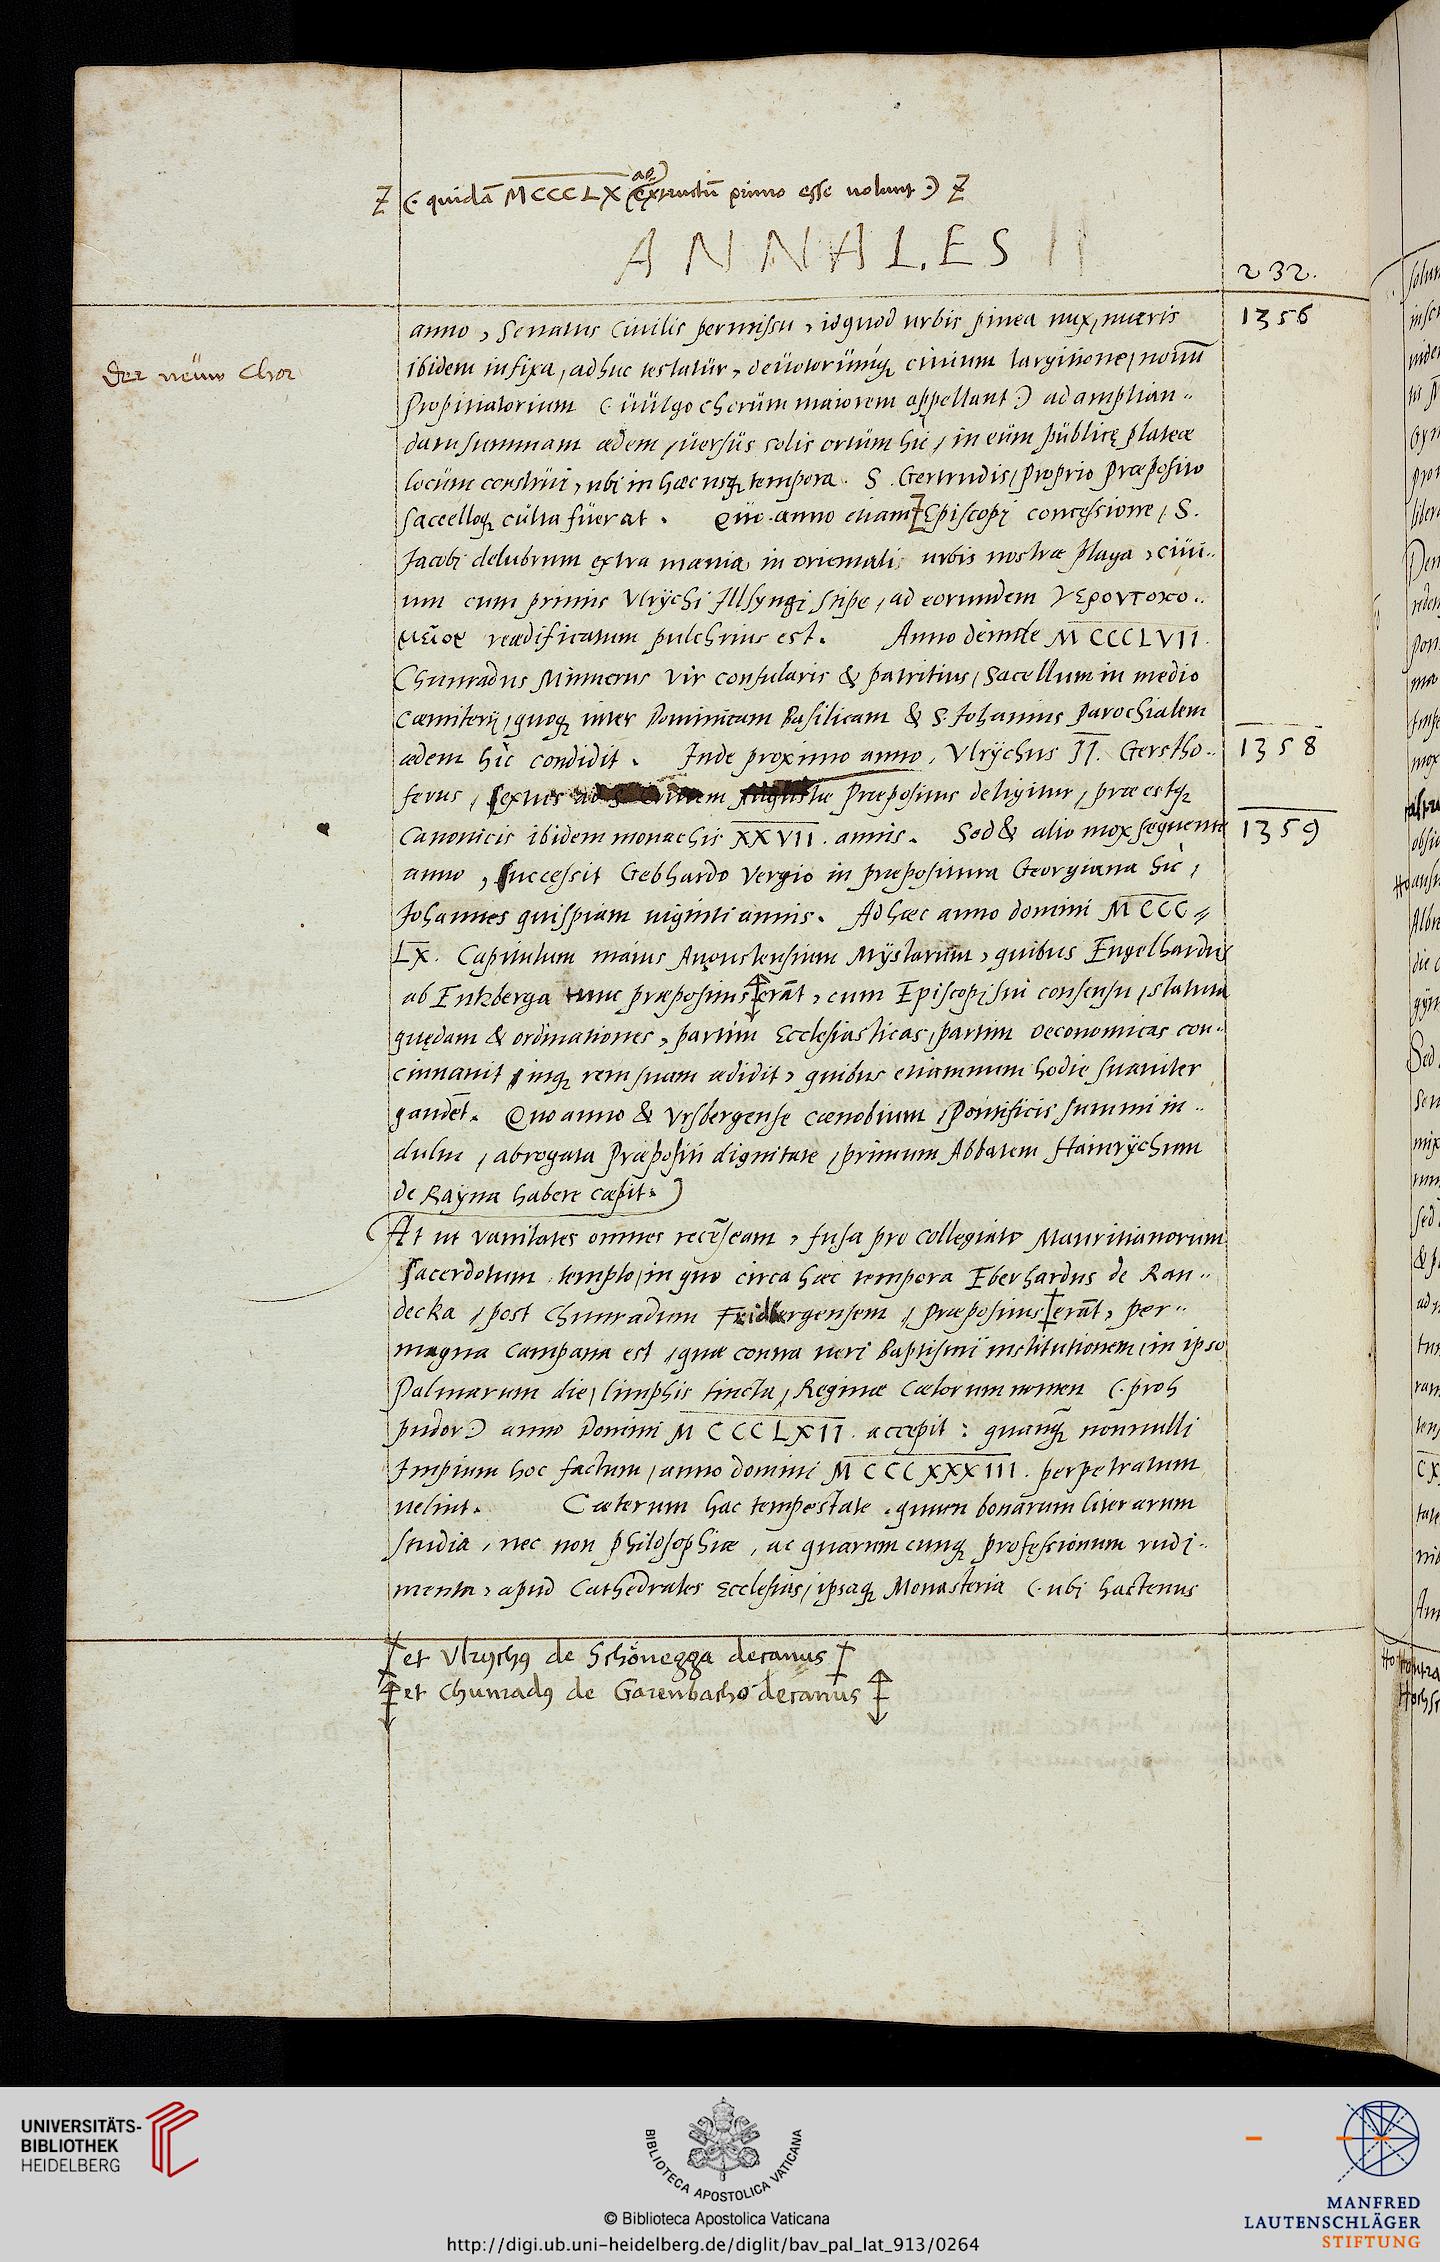 Z (: quidā MCCCLX ao extructū primo esse uolunt :) Z
ANNALES II
232.
anno, Senatus Ciuilis permissu, idquod urbis pinea nux, muris
1356
Der neüw Chor
ibidem infixa, adhuc testatür, deüotorümq; ciuium largitione, nouū
Propitiatorium (: üülgo chorüm maiorem appellant :) ad amplian-
dam summam ædem, üersüs solis ortüm hic, in eüm püblicę plateæ
locüm constrüi, ubi in hæc usq; tempora S. Gertrudis, proprio Præposito
sacelloq; culta füerat. Quo anno etiam Z Episcopi concessione, S.
Jacobi delubrum extra mænia in orientali urbis nostræ plaga, ciui-
um cum primis Vlrychi Jllsyngi stipe, ad eorundem γεροντοκο-
μεῖον reædificatum pulchrius est. Anno deinde MCCCLVII.
Chunradus Minnerus vir consularis & patritius, Sacellum in medio
Cæmiterij, quoq; inter Dominicam Basilicam & S. Johannis parochialem
ædem hic condidit. Jnde proximo anno, Vlrychus II. Gerstho-
1358
ferus, sextus ad S. Crucem Augustæ Præpositus deligitur, præestq;
Canonicis ibidem monachis XXVII. annis. Sed & alio mox sequente
1359
anno, successit Gebhardo Vergio in præpositura Georgiana hic,
Johannes quispiam uiginti annis. Ad hæc anno domini MCCC-
LX. Capitulum maius Augustensium Mystarum, quibus Engelhardus
ab Entzberga tunc præpositus erāt, cum Episcopi sui consensu, statuta
quędam & ordinationes, partim Ecclesiasticas, partim oeconomicas con-
cinnauit, inq; rem suam ædidit, quibus etiamnum hodie suauiter
gaudēt. Quo anno & Vrsbergense cænobium, Pontificis summi in-
dultu, abrogata Præpositi dignitate, primum Abbatem Hainrychum
de Rayna habere cæpit.)
At ut vanitates omnes recēseam, fusa pro Collegiato Mauritianorum
sacerdotum templo, in quo circa hæc tempora Eberhardus de Ran-
decka, post Chunradum Fridbergensem, præpositus erāt, per-
magna campana est, quæ contra ueri Baptismi institutionem, in ipso
Palmarum die, limphis tincta, Reginæ Cælorum nomen (: proh
pudor :) anno Domini MCCCLXII. accepit: quanq̄ nonnulli
Impium hoc factum, anno domini MCCCXXXIII. perpetratum
uelint. Cæterum hac tempestate, quum bonarum literarum
studia, nec non philosophiæ, ac quarumcunq; professionum rudi-
menta, apud Cathedrales Ecclesias, ipsaq; Monasteria (: ubi hactenus
et Vlrychꝰ de Schönegga decanus
et Chunradꝰ de Gozenbacho decanus
UNIVERSITÄTS-
BIBLIOTHEK
HEIDELBERG
BIBLIOTECA APOSTOLICA VATICANA
© Biblioteca Apostolica Vaticana
http://digi.ub.uni-heidelberg.de/diglit/bav_pal_lat_913/0264
MANFRED
LAUTENSCHLÄGER
STIFTUNG